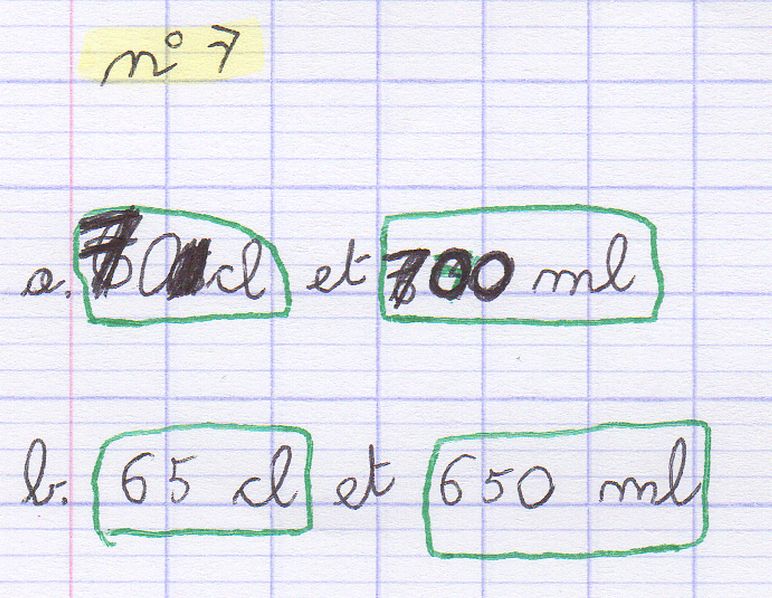 n° 7
a. 70 cl et 700 ml
b. 65 cl et 650 ml